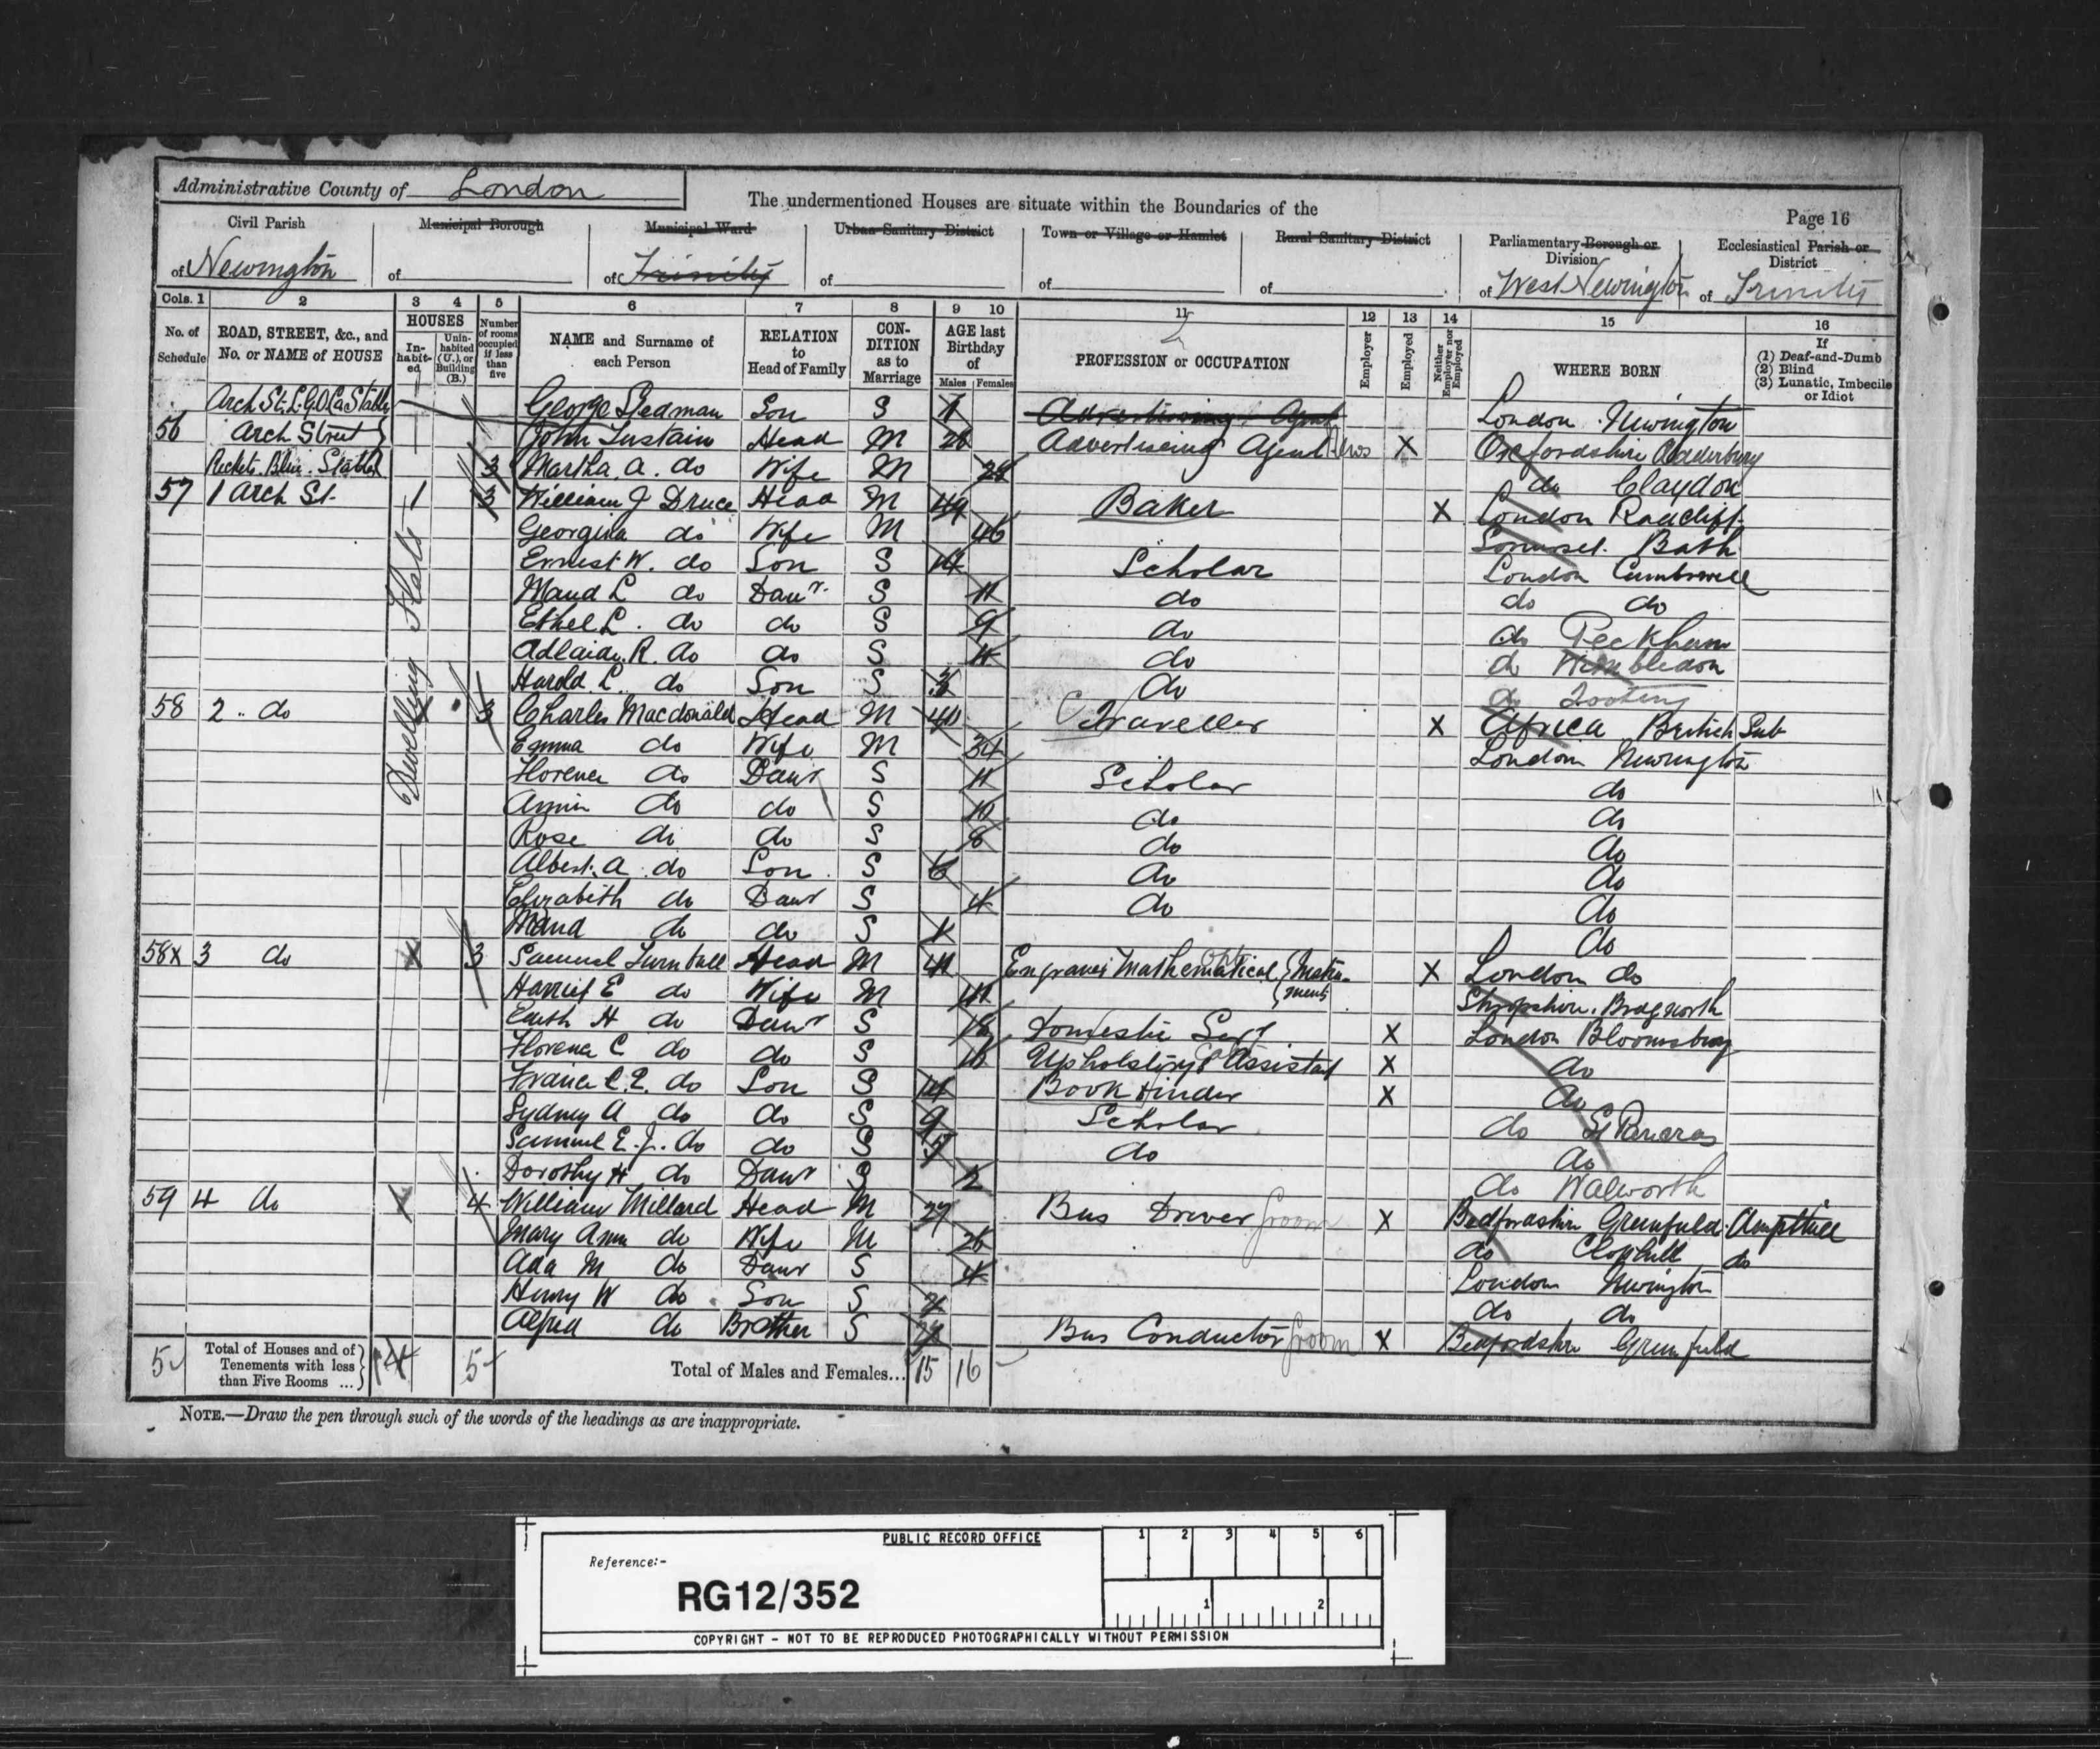 Administrative County of London
The undermentioned Houses are situate within the Boundaries of the
Page 16
Civil Parish
of Newington
Municipal Borough
of
Municipal Ward
of Trinity
Urban Sanitary District
of
Town or Village or Hamlet
of
Rural Sanitary District
of
Parliamentary Borough or Division
of West Newington
Ecclesiastical Parish or District
of Trinity
Cols. 1 2 3 4 5 6 7 8 9 10 11 12 13 14 15 16
No. of Schedule
ROAD, STREET, &c., and No. or NAME of HOUSE
HOUSES
In-habit-ed
Unin-habited (U.), or Building (B.)
Number of rooms occupied if less than five
NAME and Surname of each Person
RELATION to Head of Family
CON-DITION as to Marriage
AGE last Birthday of
Males Females
PROFESSION or OCCUPATION
Employer
Employed
Neither Employer nor Employed
WHERE BORN
If
(1) Deaf-and-Dumb
(2) Blind
(3) Lunatic, Imbecile or Idiot
Arch St. L.G.O.Co Stables George Stedman Son S 1 Advertising Agent London Newington
56 Arch Street John Tustain Head M 26 Advertising Agent X Oxfordshire Adderbury
Stables 3 Martha A. do Wife M 28 do Claydon
57 1 Arch St. 1 3 William J Druce Head M 49 Baker X London Radcliff
Georgina do Wife M 46 Somerset Bath
Ernest W. do Son S 14 Scholar London Camberwell
Maud L do Daur. S 11 do do do
Ethel L. do do S 9 do do Peckham
Adlaide R. do do S 4 do do Wimbledon
Harold L. do Son S 3 do do Tooting
Dwelling Flats
58 2 do 3 Charles Macdonald Head M 40 Traveller X Africa British Sub
Emma do Wife M 34 London Newington
Florence do Daur S 11 Scholar do
Annie do do S 10 do do
Rose do do S 8 do do
Albert A. do Son S 6 do do
Elizabeth do Daur S 4 do do
Maud do do S 1 do
58x 3 do X 3 Samuel Turnbull Head M 41 Engraver Mathematical Instruments X London do
Harriet E do Wife M 41 Shropshire Bridgnorth
Edith H do Daur S 18 Domestic Servt X London Bloomsbury
Florence C do do S 16 Upholstery Assistant X do
do Son S 14 Book Binder X do
Sydney A do do S 9 Scholar do St Pancras
Samuel E. J. do do S 5 do do
Dorothy H do Daur S 2 do Walworth
59 4 do 4 William Millard Head M 27 Bus Driver Groom X Bedfordshire Greenfield Ampthill
Mary Ann do Wife M 26 do Clophill do
Ada M do Daur S 4 London Newington
Henry W do Son S 2 do do
Alfred do Brother S Bus Conductor Groom X Bedfordshire Greenfield
5 Total of Houses and of Tenements with less than Five Rooms ... 5 Total of Males and Females... 15 16
NOTE.—Draw the pen through such of the words of the headings as are inappropriate.
PUBLIC RECORD OFFICE
Reference:-
RG12/352
1 2 3 4 5 6
1 2
COPYRIGHT - NOT TO BE REPRODUCED PHOTOGRAPHICALLY WITHOUT PERMISSION